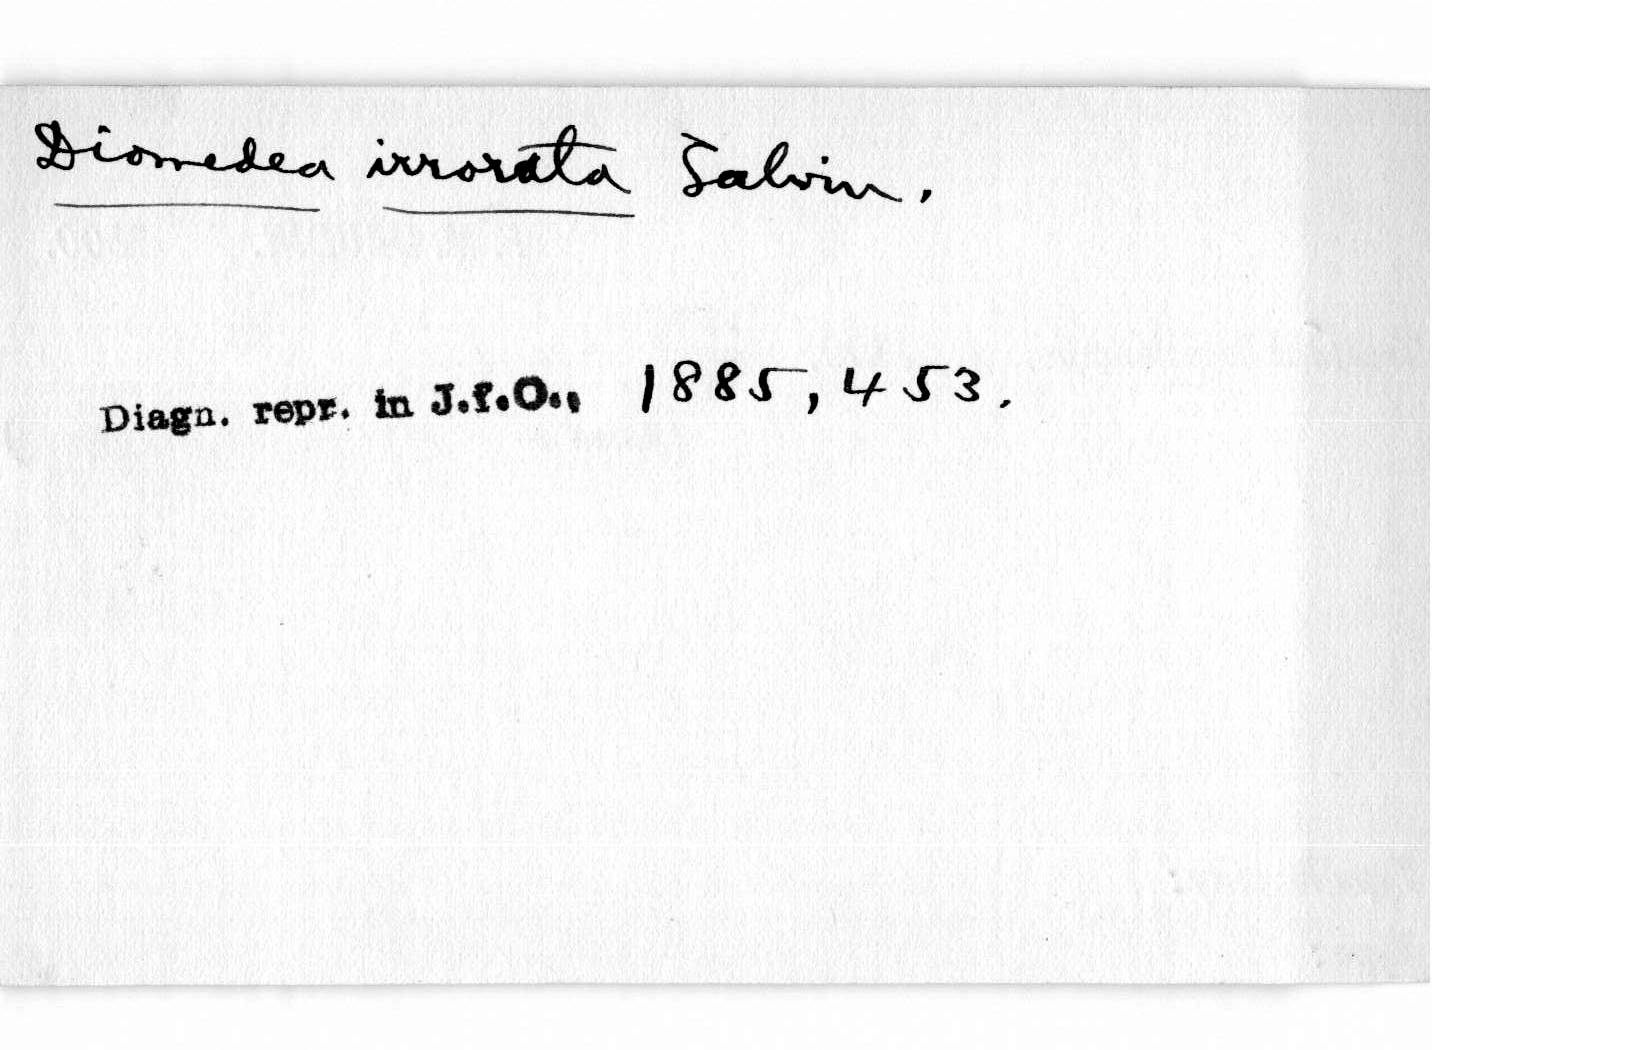 Diomedea irrorata Salvin.
Diagn. repr. in J.f.O., 1885, 453.